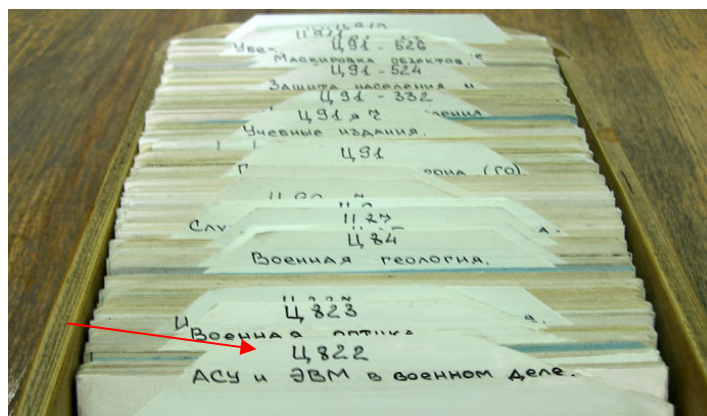 Ц911
Ц91 - 526
Маскировка объектов.
Ц91 - 524
Защита населения и
Ц91 - 332
Ц91 я 7
Учебные издания.
Ц91
(ГО).
Ц84
Военная геология.
Ц823
Военная оптика
Ц822
АСУ и ЭВМ в военном деле.